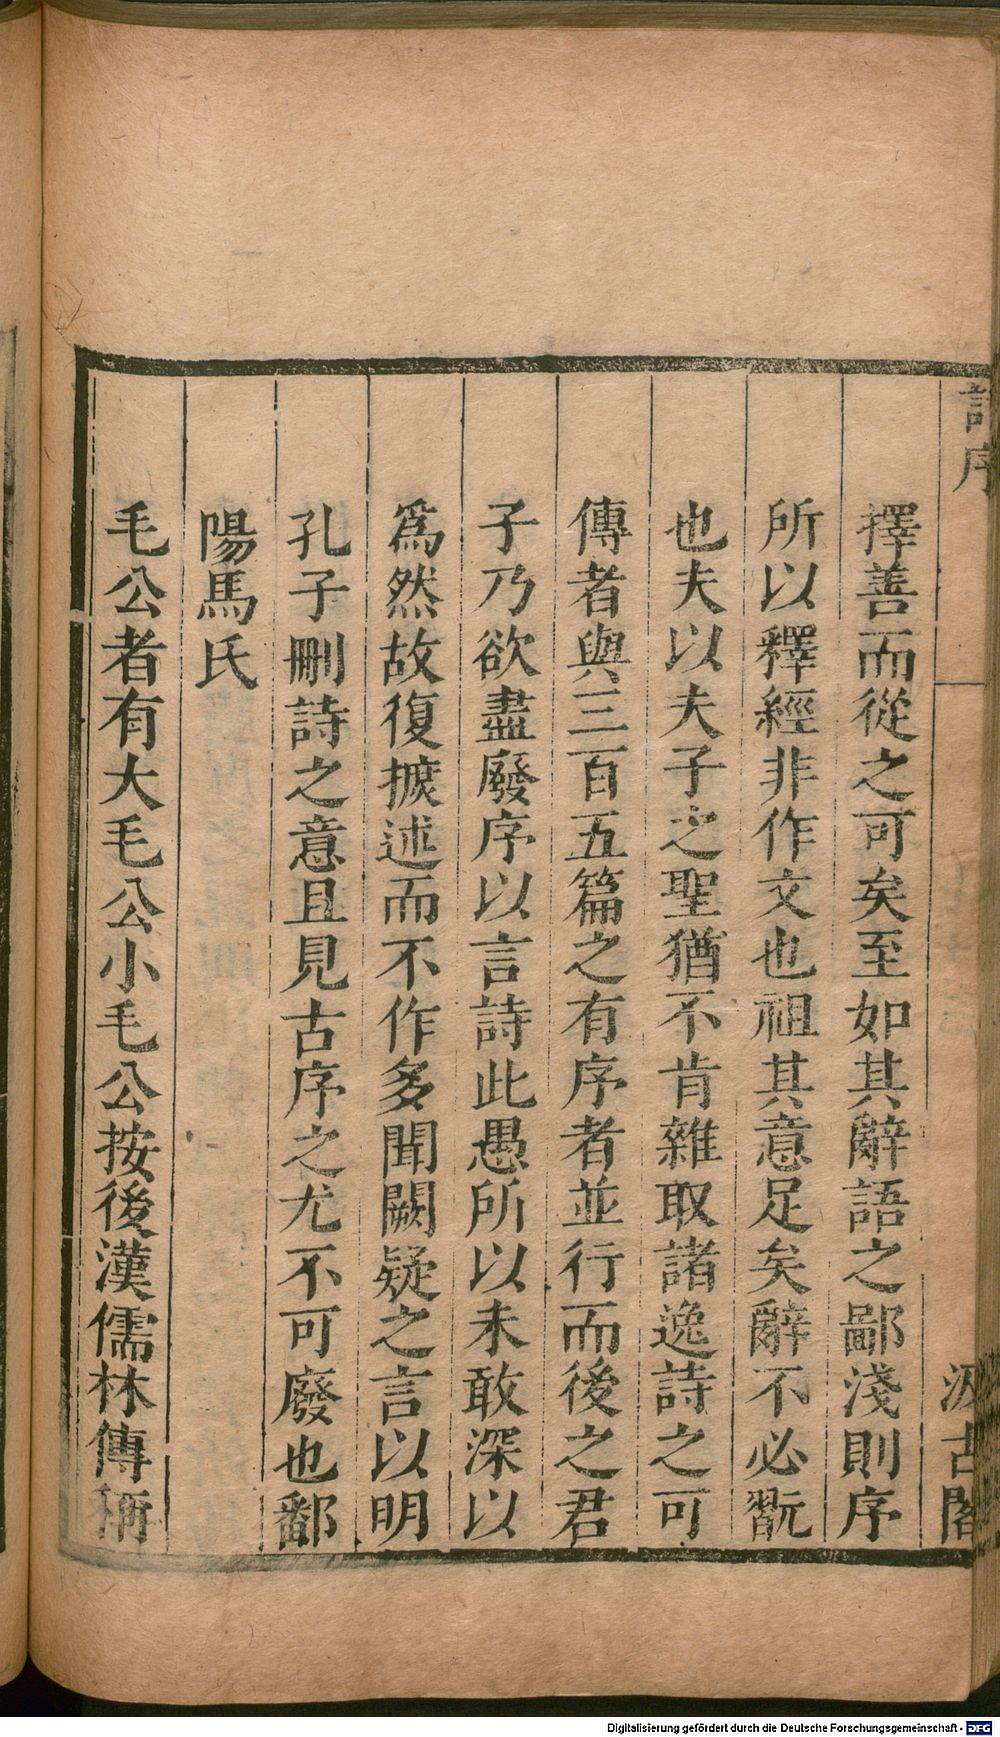 詩序
汲古閣
擇善而從之可矣至如其辭語之鄙淺則序
所以釋經非作文也祖其意足矣辭不必翫
也夫以夫子之聖猶不肯雜取諸逸詩之可
傳者與三百五篇之有序者並行而後之君
子乃欲盡廢序以言詩此愚所以未敢深以
爲然故復摭述而不作多聞闕疑之言以明
孔子刪詩之意且見古序之尤不可廢也鄱
陽馬氏
毛公者有大毛公小毛公按後漢儒林傳稱
Digitalisierung gefördert durch die Deutsche Forschungsgemeinschaft - DFG